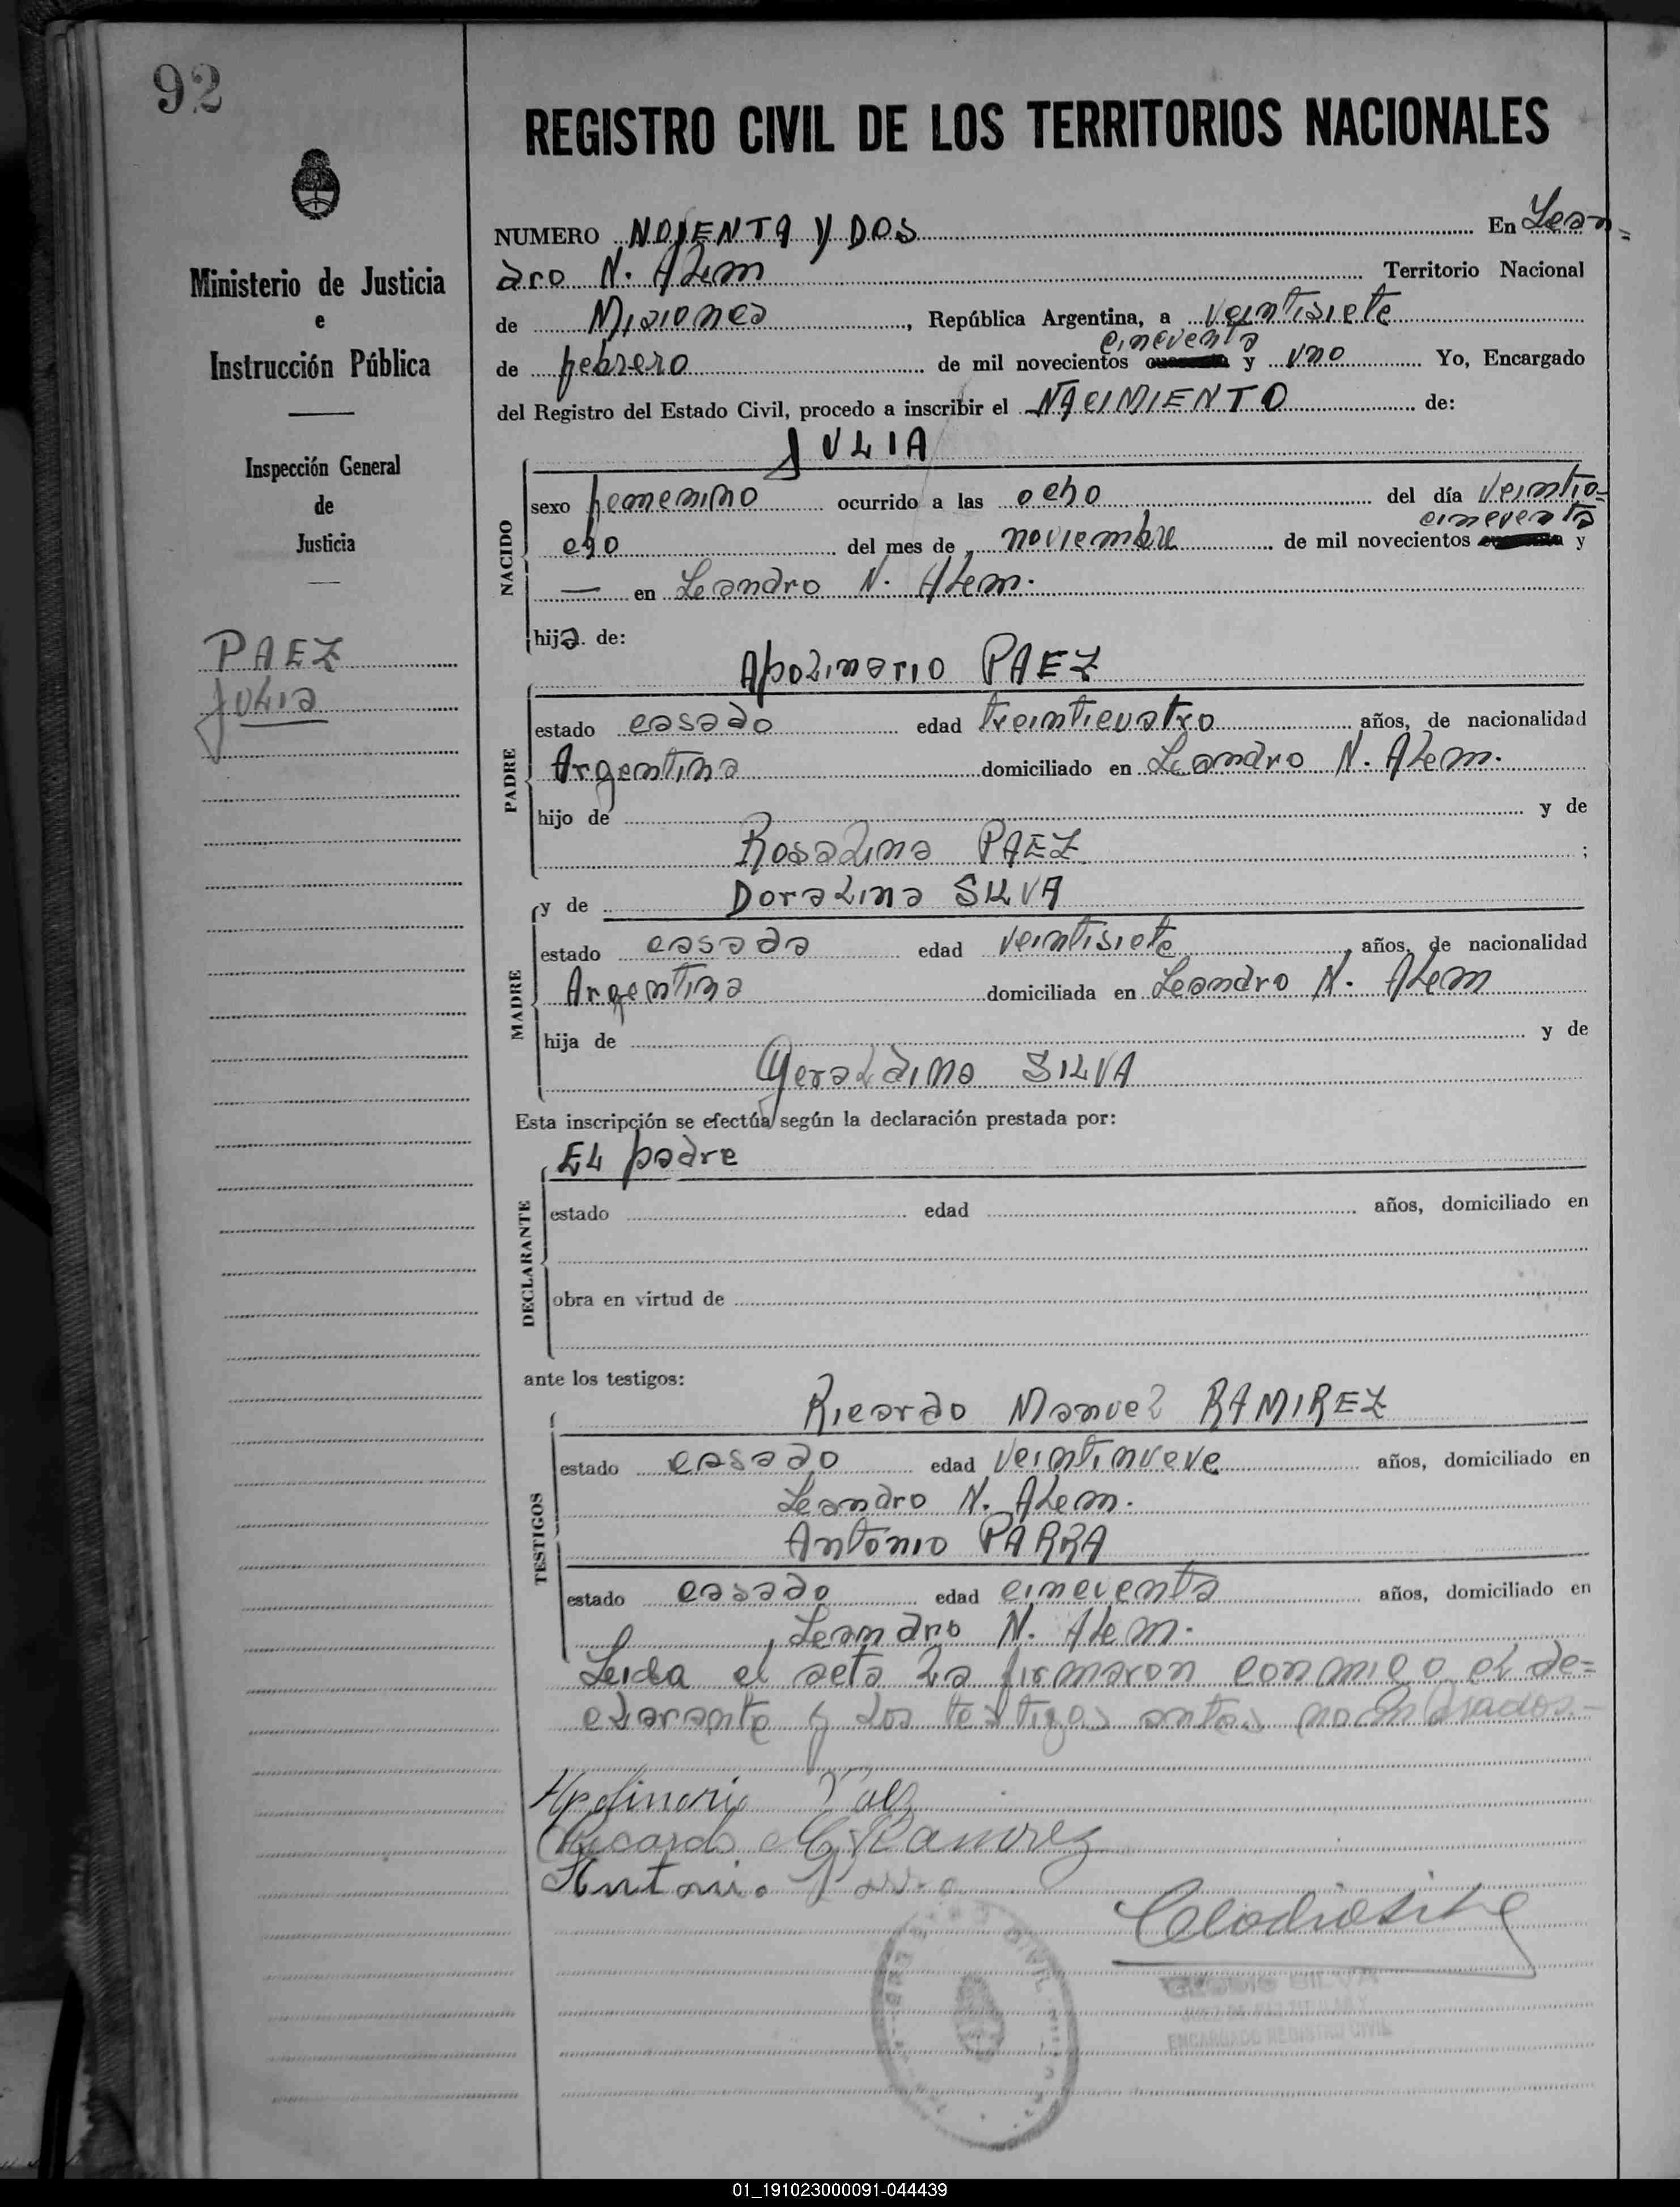 92
REGISTRO CIVIL DE LOS TERRITORIOS NACIONALES
NUMERO NOVENTA Y DOS En Lean=
dro N. Alem Territorio Nacional
de Misiones, República Argentina, a veintisiete
cincuenta
de febrero de mil novecientos y uno Yo, Encargado
del Registro del Estado Civil, procedo a inscribir el NACIMIENTO de:
JULIA
NACIDO
sexo femenino ocurrido a las ocho del día veintio=
cincuenta
cho del mes de noviembre de mil novecientos y
— en Leandro N. Alem.
hija de:
Apolinario PAEZ
PADRE
estado casado edad treinticuatro años, de nacionalidad
Argentina domiciliado en Leandro N. Alem.
hijo de y de
Rosalina PAEZ ;
y de Doralina SILVA
MADRE
estado casada edad veintisiete años, de nacionalidad
Argentina domiciliada en Leandro N. Alem
hija de y de
Geraldina SILVA
Esta inscripción se efectúa según la declaración prestada por:
El padre
DECLARANTE
estado edad años, domiciliado en
obra en virtud de
ante los testigos:
Ricardo Manuel RAMIREZ
TESTIGOS
estado casado edad veintinueve años, domiciliado en
Leandro N. Alem.
Antonio PARRA
estado casado edad cincuenta años, domiciliado en
Leandro N. Alem.
Leida el acta la firmaron conmigo el de=
clarante y los testigos antes nombrados.-
Apolinario Paez
Ricardo M Ramirez
Antonio Parra
Clodio Silva
CLODIO SILVA
JUEZ DE PAZ TITULAR Y
ENCARGADO REGISTRO CIVIL
Ministerio de Justicia
e
Instrucción Pública
Inspección General
de
Justicia
PAEZ
Julia
01_191023000091-044439